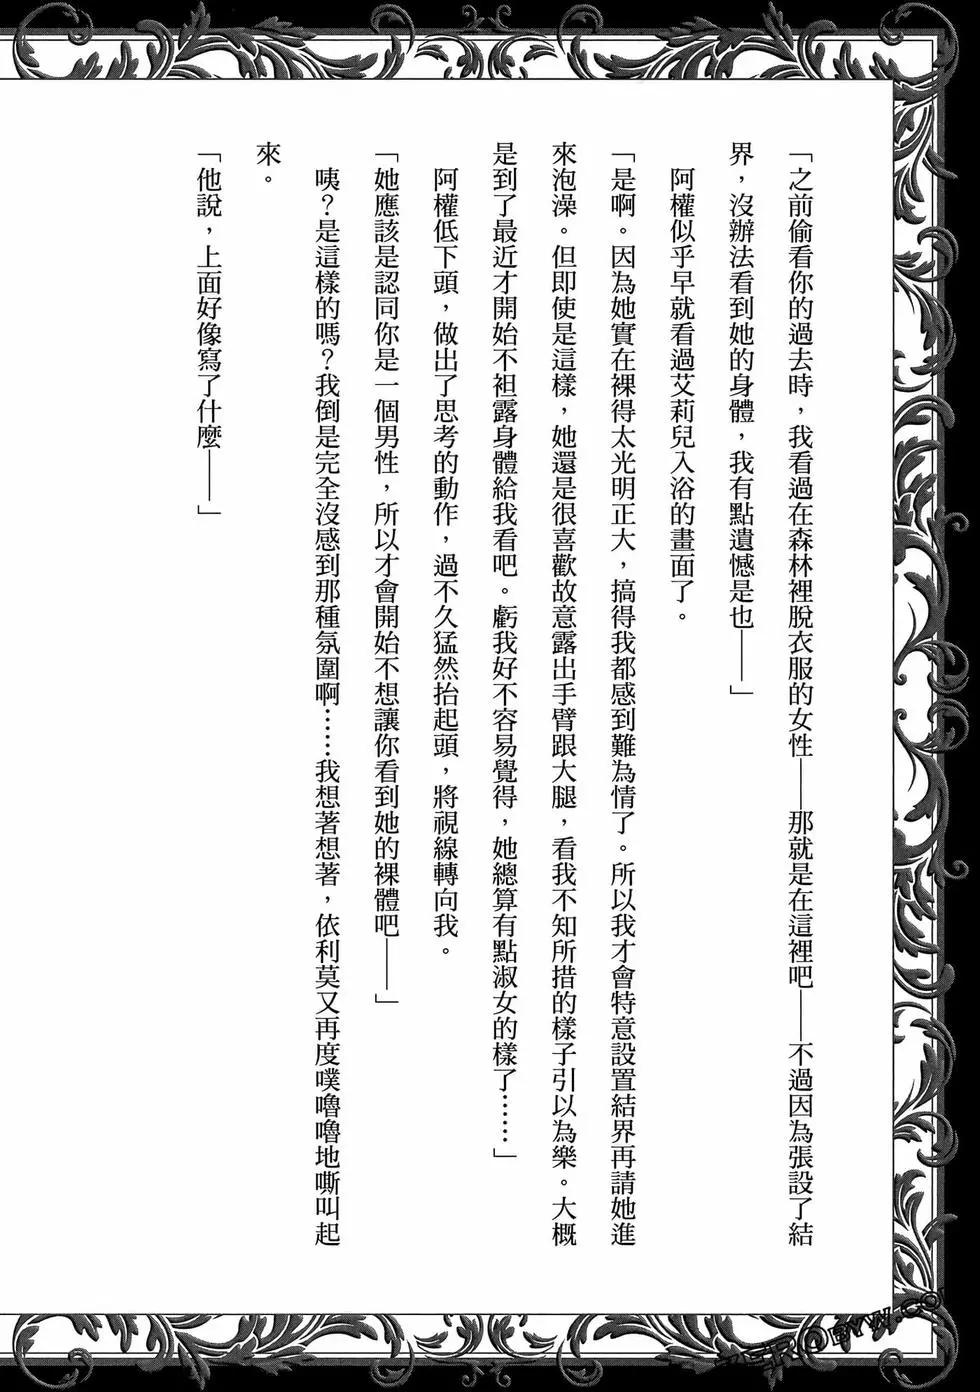 「之前偷看你的過去時，我看過在森林裡脫衣服的女性——那就是在這裡吧——不過因為張設了結
界，沒辦法看到她的身體，我有點遺憾是也——」
阿權似乎早就看過艾莉兒入浴的畫面了。
「是啊。因為她實在裸得太光明正大，搞得我都感到難為情了。所以我才會特意設置結界再請她進
來泡澡。但即使是這樣，她還是很喜歡故意露出手臂跟大腿，看我不知所措的樣子引以為樂。大概
是到了最近才開始不袒露身體給我看吧。虧我好不容易覺得，她總算有點淑女的樣了……」
阿權低下頭，做出了思考的動作，過不久猛然抬起頭，將視線轉向我。
「她應該是認同你是一個男性，所以才會開始不想讓你看到她的裸體吧——」
咦？是這樣的嗎？我倒是完全沒感到那種氛圍啊……我想著想著，依利莫又再度噗嚕嚕地嘶叫起
來。
「他說，上面好像寫了什麼——」
ZEROBYW.CO